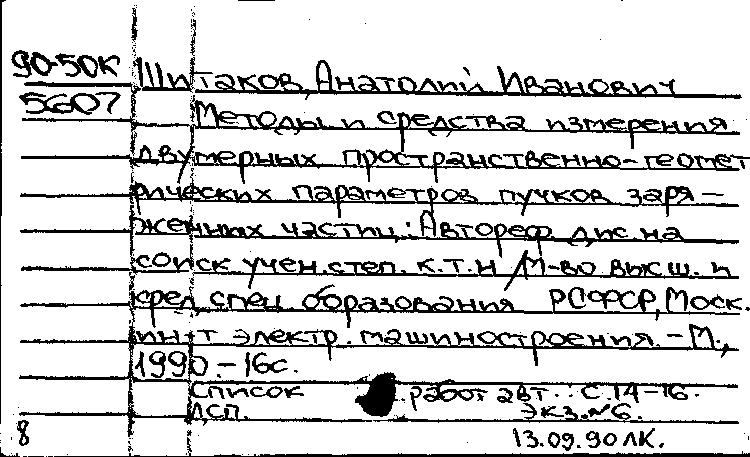 90-50К Шитаков, Анатолий Иванович
5607 Методы и средства измерения
двумерных пространственно-геомет
рических параметров пучков заря-
женных частиц: Автореф. дис. на
соиск. учен. степ. к.т.н / М-во высш. и
сред. спец. образования РСФСР, Моск.
ин-т электр. машиностроения. - М.,
1990. - 16с.
Список работ авт.: С.14-16.
ДСП. Экз. №6.
8 13.09.90 ЛК.